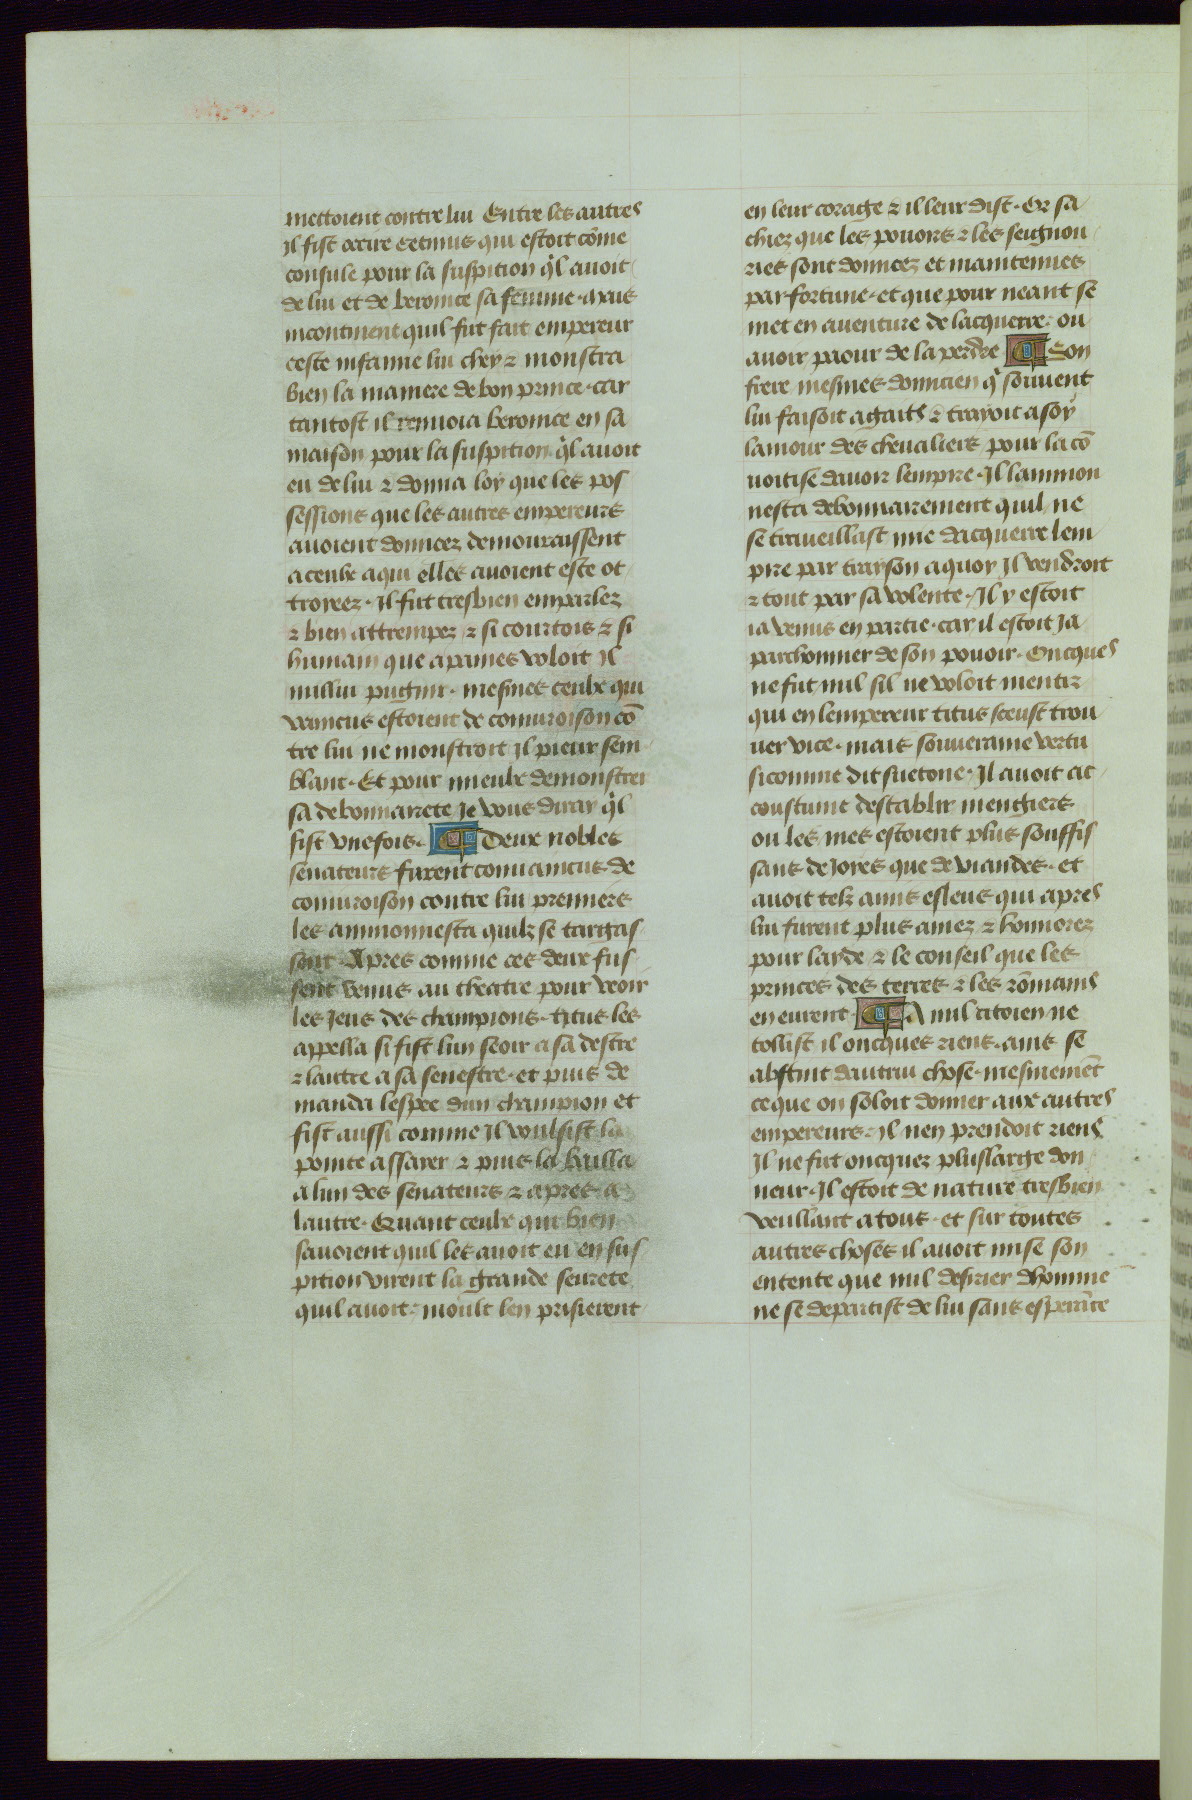 mettoient contre lui Entre les autres
il fist ocire cecinus qui estoit cōme
consule pour la suspition q̓l avoit
de lui et de beronice sa femme · mais
incontinent quil fut fait empereur
ceste infamie lui chey ⁊ monstra
bien la maniere de bon prince · car
tantost il renvoia beronice en sa
maison pour la suspition q̓l avoit
eu de lui ⁊ donna loy que les pos
sessions que les autres empereurs
avoient donnees demouraissent
a ceulx a qui elles avoient este ot
troyees · Il fut tresbien emparlez
⁊ bien attrempez ⁊ si courtois ⁊ si
humain que a paines voloit il
nullui pugnir · mesmes ceulx qui
vaincus estoient de coniuroison cō
tre lui ne monstroit il pieur sem
blant · Et pour mieulx demonstrer
sa debonnairete Je vous diray q̓l
fist vne fois · Deux nobles
senateurs furent convaincus de
coniuroison contre lui premiers
les ammonnesta quilz se targas
sent · Apres comme ces deux fus
sent venus au theatre pour veoir
les Jeus des champions · tytus les
appella si fist lun seoir a sa destre
⁊ lautre a sa senestre · et puis de
manda lespee dun champion et
fist aussi comme il voulsist la
pointe assaier ⁊ puis la bailla
a lun des senateurs ⁊ apres a
lautre · Quant ceulx qui bien
savoient quil les avoit eu en sus
pition virent la grande seurete
quil avoit · moult len prisierent
en leur corage ⁊ il leur dist · Or sa
chiez que les povoirs ⁊ les seignou
ries sont donnees et maintenues
par fortune · et que pour neant se
met en aventure de lacquerre · ou
avoir paour de la perdre Son
frere mesmes domicien q̓ souvent
lui faisoit agaits ⁊ trayoit a soy
lamour des chevaliers pour la cō
voitise davoir lempire · Il lammon
nesta debonnairement quil ne
se traveillast mie dacquerre lem
pire par trayson a quoy il vendroit
⁊ tout par sa volente · Il y estoit
ia venus en partie · car il estoit Ja
parchonnier de son povoir · Oncques
ne fut nul sil ne voloit mentir
qui en lempereur titus sceust trou
uer vice · mais souveraine vertu
si comme dit suetone · Il avoit ac
coustume destablir mengiers
ou les mes estoient plus souffis
sans de Joies que de viandes · et
avoit telz amis esleus qui apres
lui furent plus amez ⁊ honnorez
pour laide ⁊ le conseil que les
princes des terres ⁊ les rōmains
en eurent · A nul citoien ne
tollist il oncques riens · ains se
abstint dautrui chose · mesmemēt
ce que on soloit donner aux autres
empereurs · Il nen prendoit riens
Il ne fut oncquez plus large don
neur · Il estoit de nature tresbien
veullant a tous · et sur toutes
autres choses il avoit mise son
entente que nul desirier dhomme
ne se departist de lui sans esperāce